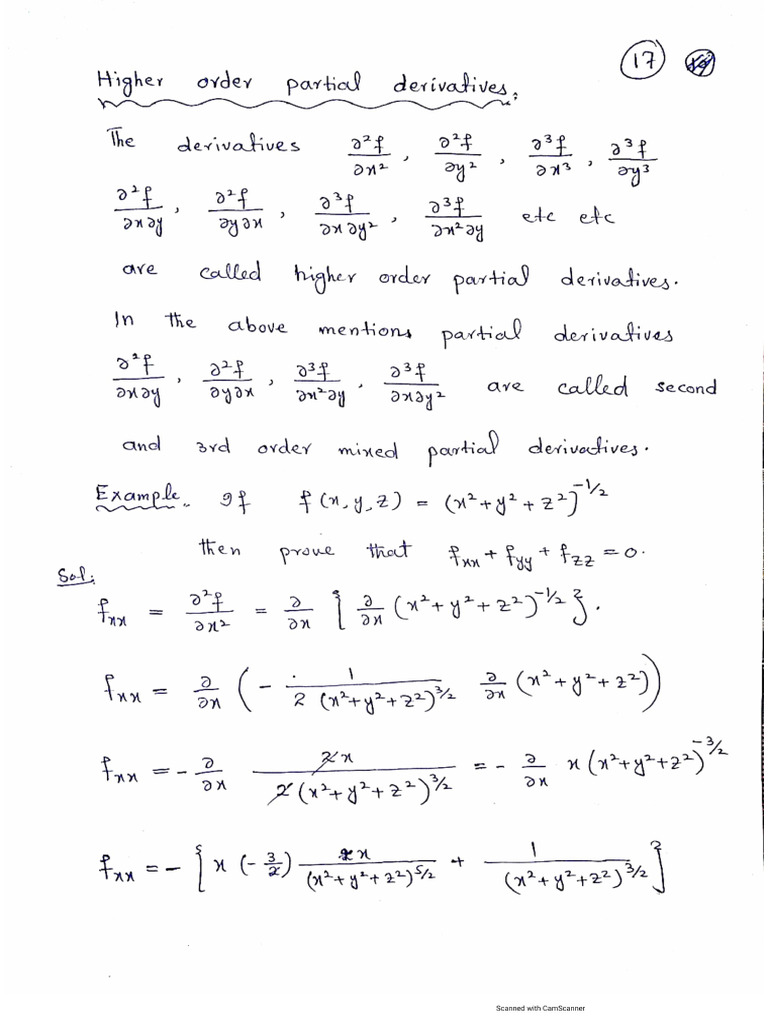 17
Higher order partial derivatives.
The derivatives ∂²f/∂x², ∂²f/∂y², ∂³f/∂x³, ∂³f/∂y³
∂²f/∂x∂y, ∂²f/∂y∂x, ∂³f/∂x∂y², ∂³f/∂x²∂y etc etc
are called higher order partial derivatives.
In the above mentions partial derivatives
∂²f/∂x∂y, ∂²f/∂y∂x, ∂³f/∂x²∂y, ∂³f/∂x∂y² are called second
and 3rd order mixed partial derivatives.
Example. If f(x,y,z) = (x²+y²+z²)^(-1/2)
then prove that fxx + fyy + fzz = 0.
Sol:
fxx = ∂²f/∂x² = ∂/∂x {∂/∂x (x²+y²+z²)^(-1/2)}.
fxx = ∂/∂x (- 1/(2(x²+y²+z²)^(3/2)) ∂/∂x (x²+y²+z²))
fxx = - ∂/∂x 2x/(2(x²+y²+z²)^(3/2)) = - ∂/∂x x(x²+y²+z²)^(-3/2)
fxx = - {x(-3/2) 2x/(x²+y²+z²)^(5/2) + 1/(x²+y²+z²)^(3/2)}
Scanned with CamScanner